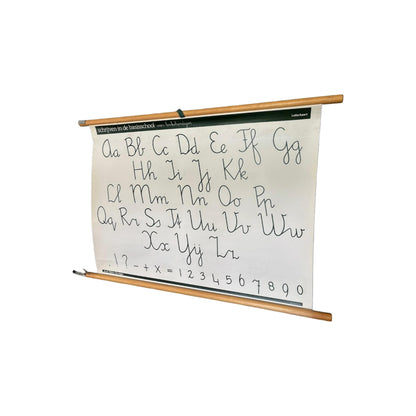 schrijven in de basisschool
Aa Bb Cc Dd Ee Ff Gg
Hh Ii Jj Kk
Ll Mm Nn Oo Pp
Qq Rr Ss Tt Uu Vv Ww
Xx Yy Zz
. ! ? - + x = 1 2 3 4 5 6 7 8 9 0